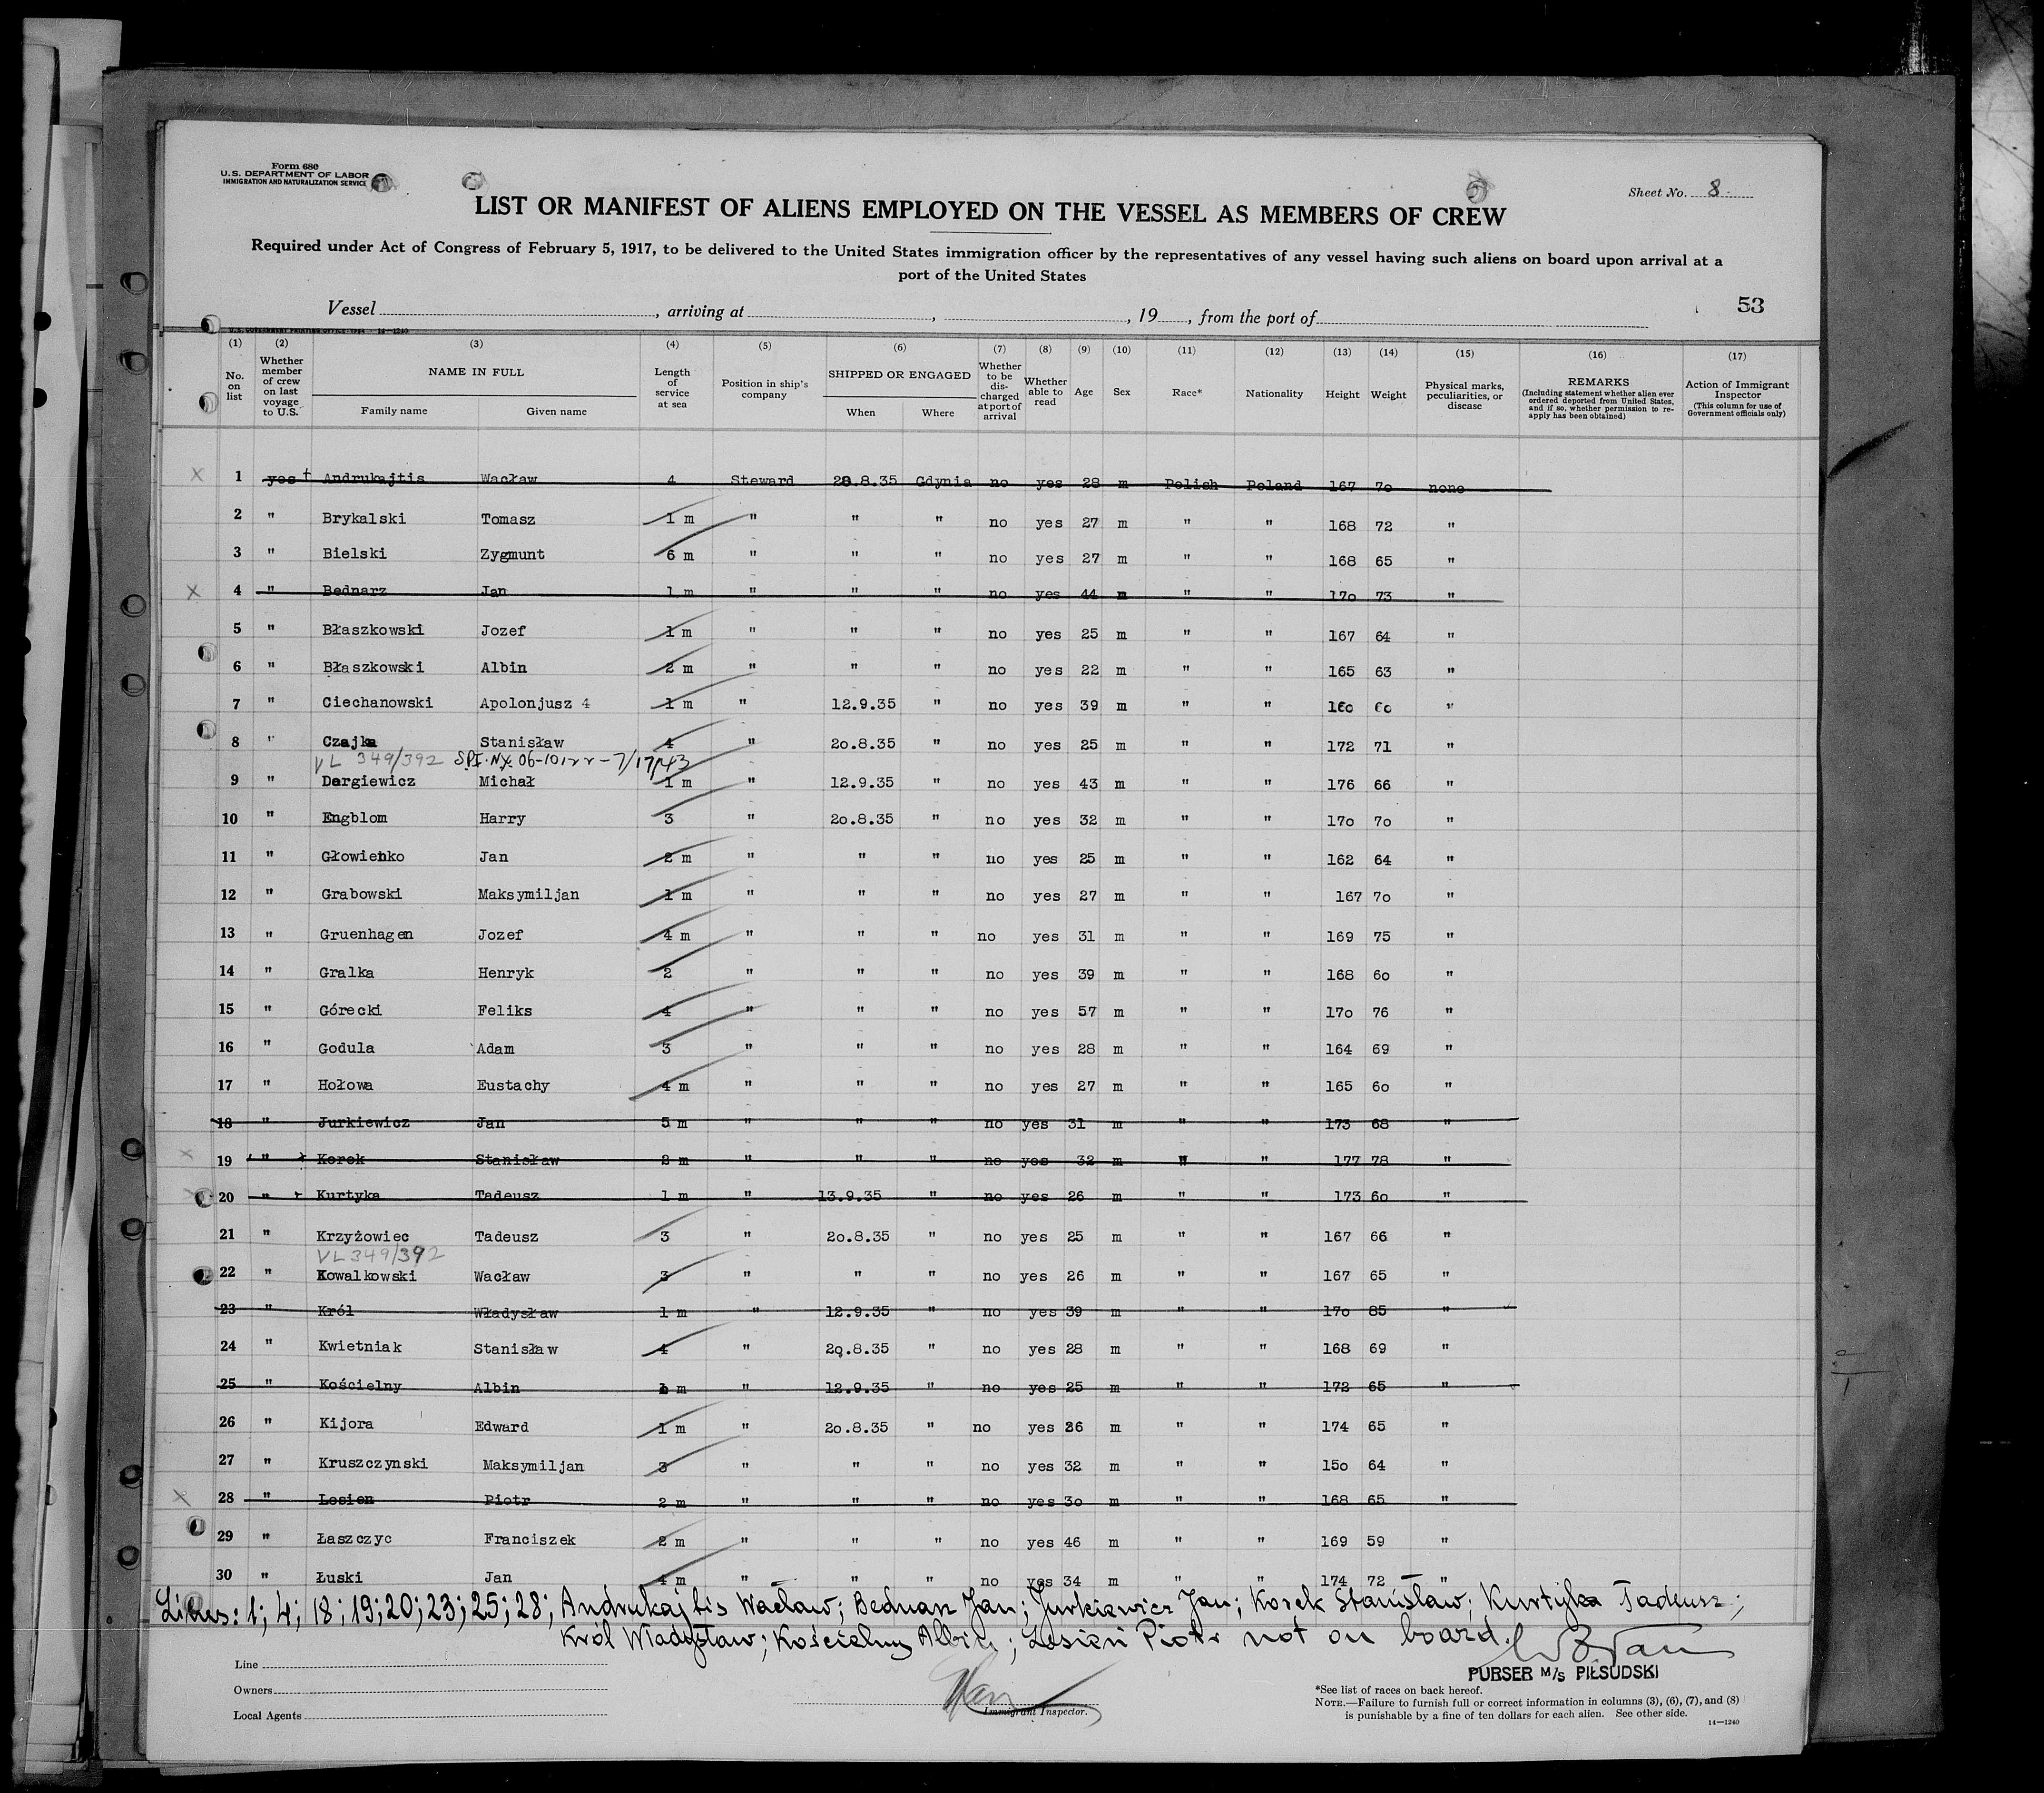 Form 680
U.S. DEPARTMENT OF LABOR
IMMIGRATION AND NATURALIZATION SERVICE
Sheet No. 8
LIST OR MANIFEST OF ALIENS EMPLOYED ON THE VESSEL AS MEMBERS OF CREW
Required under Act of Congress of February 5, 1917, to be delivered to the United States immigration officer by the representatives of any vessel having such aliens on board upon arrival at a
port of the United States
Vessel , arriving at , , 19 , from the port of
53
U.S. GOVERNMENT PRINTING OFFICE 14—1240
(1) (2) (3) (4) (5) (6) (7) (8) (9) (10) (11) (12) (13) (14) (15) (16) (17)
No. on list Whether member of crew on last voyage to U.S. NAME IN FULL Family name Given name Length of service at sea Position in ship's company SHIPPED OR ENGAGED When Where Whether to be discharged at port of arrival Whether able to read Age Sex Race* Nationality Height Weight Physical marks, peculiarities, or disease REMARKS (Including statement whether alien ever ordered deported from United States, and if so, whether permission to reapply has been obtained) Action of Immigrant Inspector (This column for use of Government officials only)
x 1 yes Andrukajtis Wacław 4 Steward 20.8.35 Gdynia no yes 28 m Polish Poland 167 70 none
2 " Brykalski Tomasz 1 m " " " no yes 27 m " " 168 72 "
3 " Bielski Zygmunt 6 m " " " no yes 27 m " " 168 65 "
x 4 " Bednarz Jan 1 m " " " no yes 44 m " " 170 73 "
5 " Błaszkowski Jozef 1 m " " " no yes 25 m " " 167 64 "
6 " Błaszkowski Albin 2 m " " " no yes 22 m " " 165 63 "
7 " Ciechanowski Apolonjusz 4 1 m " 12.9.35 " no yes 39 m " " 160 60 "
8 " Czajka Stanisław 4 " 20.8.35 " no yes 25 m " " 172 71 "
VL 349/392 SPI.NY. 06-10122-7/17/43
9 " Dargiewicz Michał 1 m " 12.9.35 " no yes 43 m " " 176 66 "
10 " Engblom Harry 3 " 20.8.35 " no yes 32 m " " 170 70 "
11 " Głowienko Jan 2 m " " " no yes 25 m " " 162 64 "
12 " Grabowski Maksymiljan 1 m " " " no yes 27 m " " 167 70 "
13 " Gruenhagen Jozef 4 m " " " no yes 31 m " " 169 75 "
14 " Gralka Henryk 2 " " " no yes 39 m " " 168 60 "
15 " Górecki Feliks 4 " " " no yes 57 m " " 170 76 "
16 " Godula Adam 3 " " " no yes 28 m " " 164 69 "
17 " Hołowa Eustachy 4 m " " " no yes 27 m " " 165 60 "
18 " Jurkiewicz Jan 5 m " " " no yes 31 m " " 173 68 "
x 19 " Korek Stanisław 2 m " " " no yes 32 m " " 177 78 "
x 20 " Kurtyka Tadeusz 1 m " 13.9.35 " no yes 26 m " " 173 60 "
21 " Krzyżowiec Tadeusz 3 " 20.8.35 " no yes 25 m " " 167 66 "
VL 349/392
22 " Kowalkowski Wacław 3 " " " no yes 26 m " " 167 65 "
23 " Król Władysław 1 m " 12.9.35 " no yes 39 m " " 170 85 "
24 " Kwietniak Stanisław 4 " 20.8.35 " no yes 28 m " " 168 69 "
25 " Kościelny Albin m " 12.9.35 " no yes 25 m " " 172 65 "
26 " Kijora Edward 1 m " 20.8.35 " no yes 36 m " " 174 65 "
27 " Kruszczynski Maksymiljan 3 " " " no yes 32 m " " 150 64 "
x 28 " Lesien Piotr 2 m " " " no yes 30 m " " 168 65 "
29 " Łaszczyc Franciszek 2 m " " " no yes 46 m " " 169 59 "
30 " Łuski Jan 4 m " " " no yes 34 m " " 174 72 "
Lines: 1; 4; 18; 19; 20; 23; 25; 28; Andrukajtis Wacław; Bednarz Jan; Jurkiewicz Jan; Korek Stanisław; Kurtyka Tadeusz;
Król Władysław; Kościelny Albin; Lesień Piotr not on board.
Line
Owners
Local Agents
Immigrant Inspector.
PURSER M/S PIŁSUDSKI
*See list of races on back hereof.
NOTE.—Failure to furnish full or correct information in columns (3), (6), (7), and (8)
is punishable by a fine of ten dollars for each alien. See other side.
14—1240